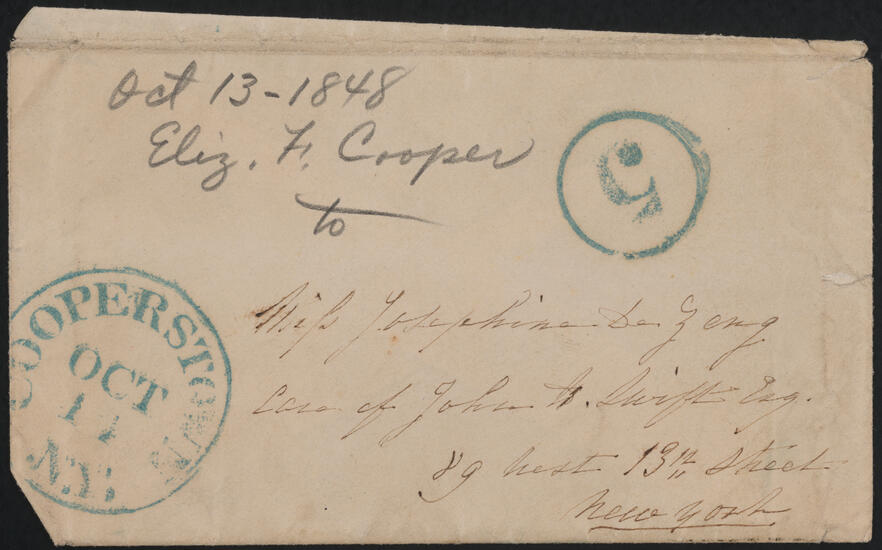 Oct 13-1848
Eliz. F. Cooper
to
5
COOPERSTOWN
OCT
14
N.Y.
Miss Josephine De Zeng
Care of John H. Swift Esq.
89 West 13th Street
New York